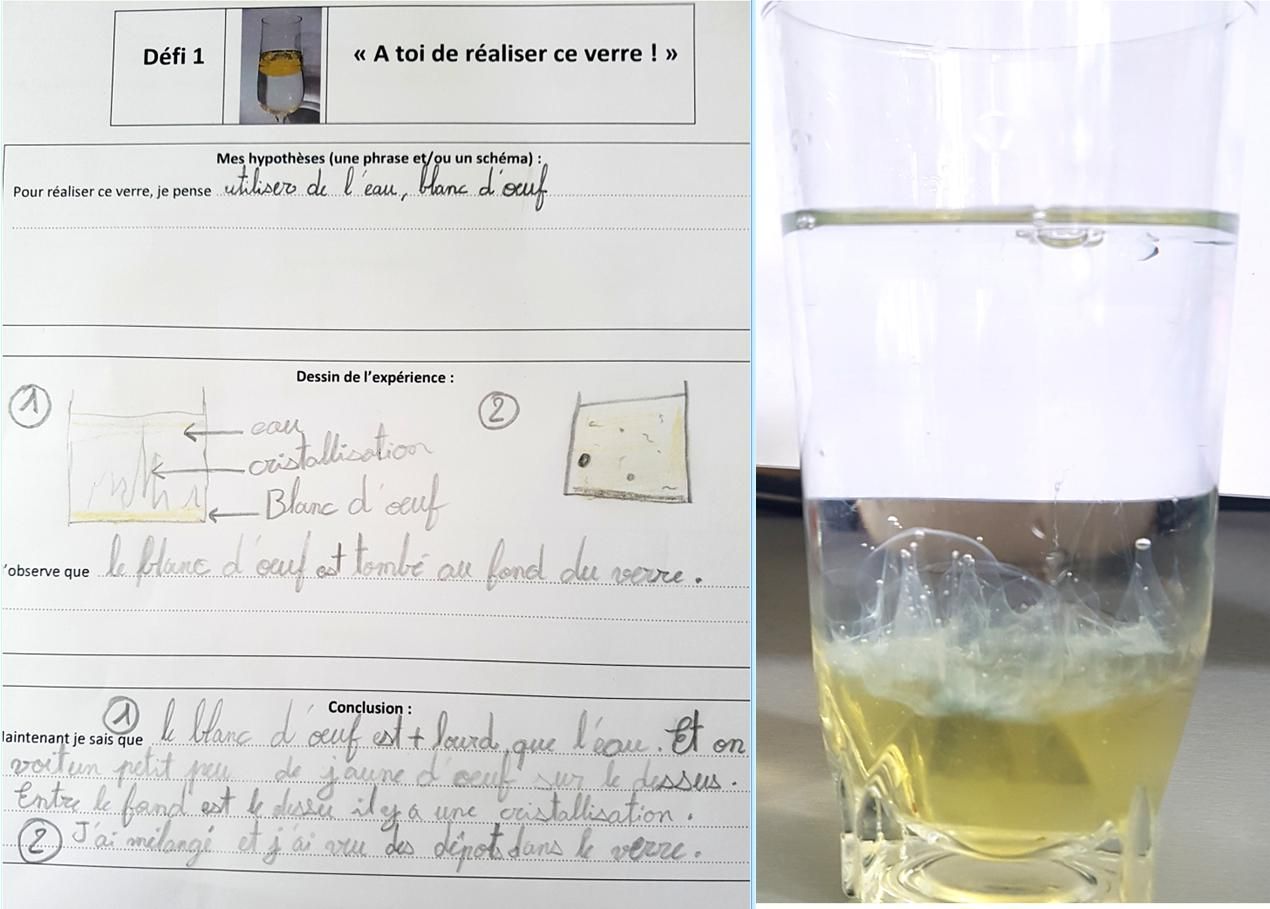 Défi 1
« A toi de réaliser ce verre ! »
Mes hypothèses (une phrase et/ou un schéma) :
Pour réaliser ce verre, je pense utiliser de l'eau, blanc d'œuf
Dessin de l'expérience :
1
2
eau
cristallisation
Blanc d'œuf
'observe que le blanc d'œuf est tombé au fond du verre.
Conclusion :
1
laintenant je sais que le blanc d'œuf est + lourd que l'eau. Et on
voit un petit peu de jaune d'oeuf sur le dessus.
Entre le fond est le dessu il y a une cristallisation.
2 J'ai mélangé et j'ai vru des dépots dans le verre.